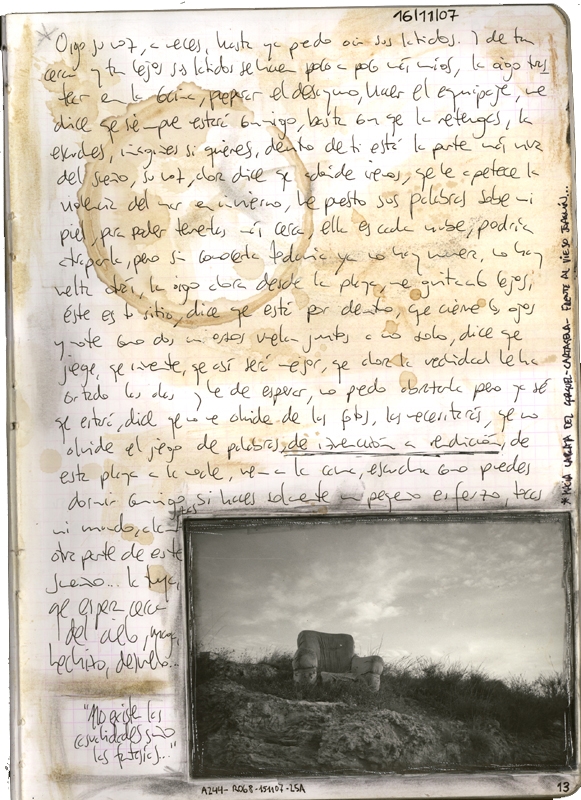 16/11/07
Oigo su voz, a veces, hasta ya puedo oír sus latidos. Y de tan
cerca y tan lejos sus latidos se hacen poco a poco más míos, la oigo tras
tear en la cocina, preparar el desayuno, hacer el equipaje, me
dice que siempre estará conmigo, basta con que la retengas, la
escuches, imagines si quieres, dentro de ti está la parte más viva
del sueño, su voz, clara dice que adónde vienes, que le apetece la
violencia del mar en invierno, he puesto sus palabras sobre mi
piel, para poder tenerlas más cerca, ella es cada nube, podría
atraparla, pero sin conocerla todavía ya no hay nunca, no hay
vuelta atrás, la oigo clara desde la playa, me grita a lo lejos,
éste es tu sitio, dice que esté por dentro, que cierre los ojos
y note como dos manos vuelan juntas a un solo, dice que
juegue, que invente, que así será mejor, que ahora la realidad le ha
cortado las alas y he de esperar, no puedo abrazarla pero ya sé
que estará, dice que no me olvide de las fotos, las necesitarás, que no
olvide el juego de palabras, de invención a rendición, de
esta playa a la noche, ven a la cama, escucha como puedes
dormir conmigo, si haces solamente un pequeño esfuerzo, tocas
mi mundo,
otra parte de este
sueño... la tuya,
que espera cerca
del cielo,
hechizo, desvelo...
"No existen las
casualidades sino
las fantasías..."
A244-R068-151107-25A
13
FRENTE AL VIEJO